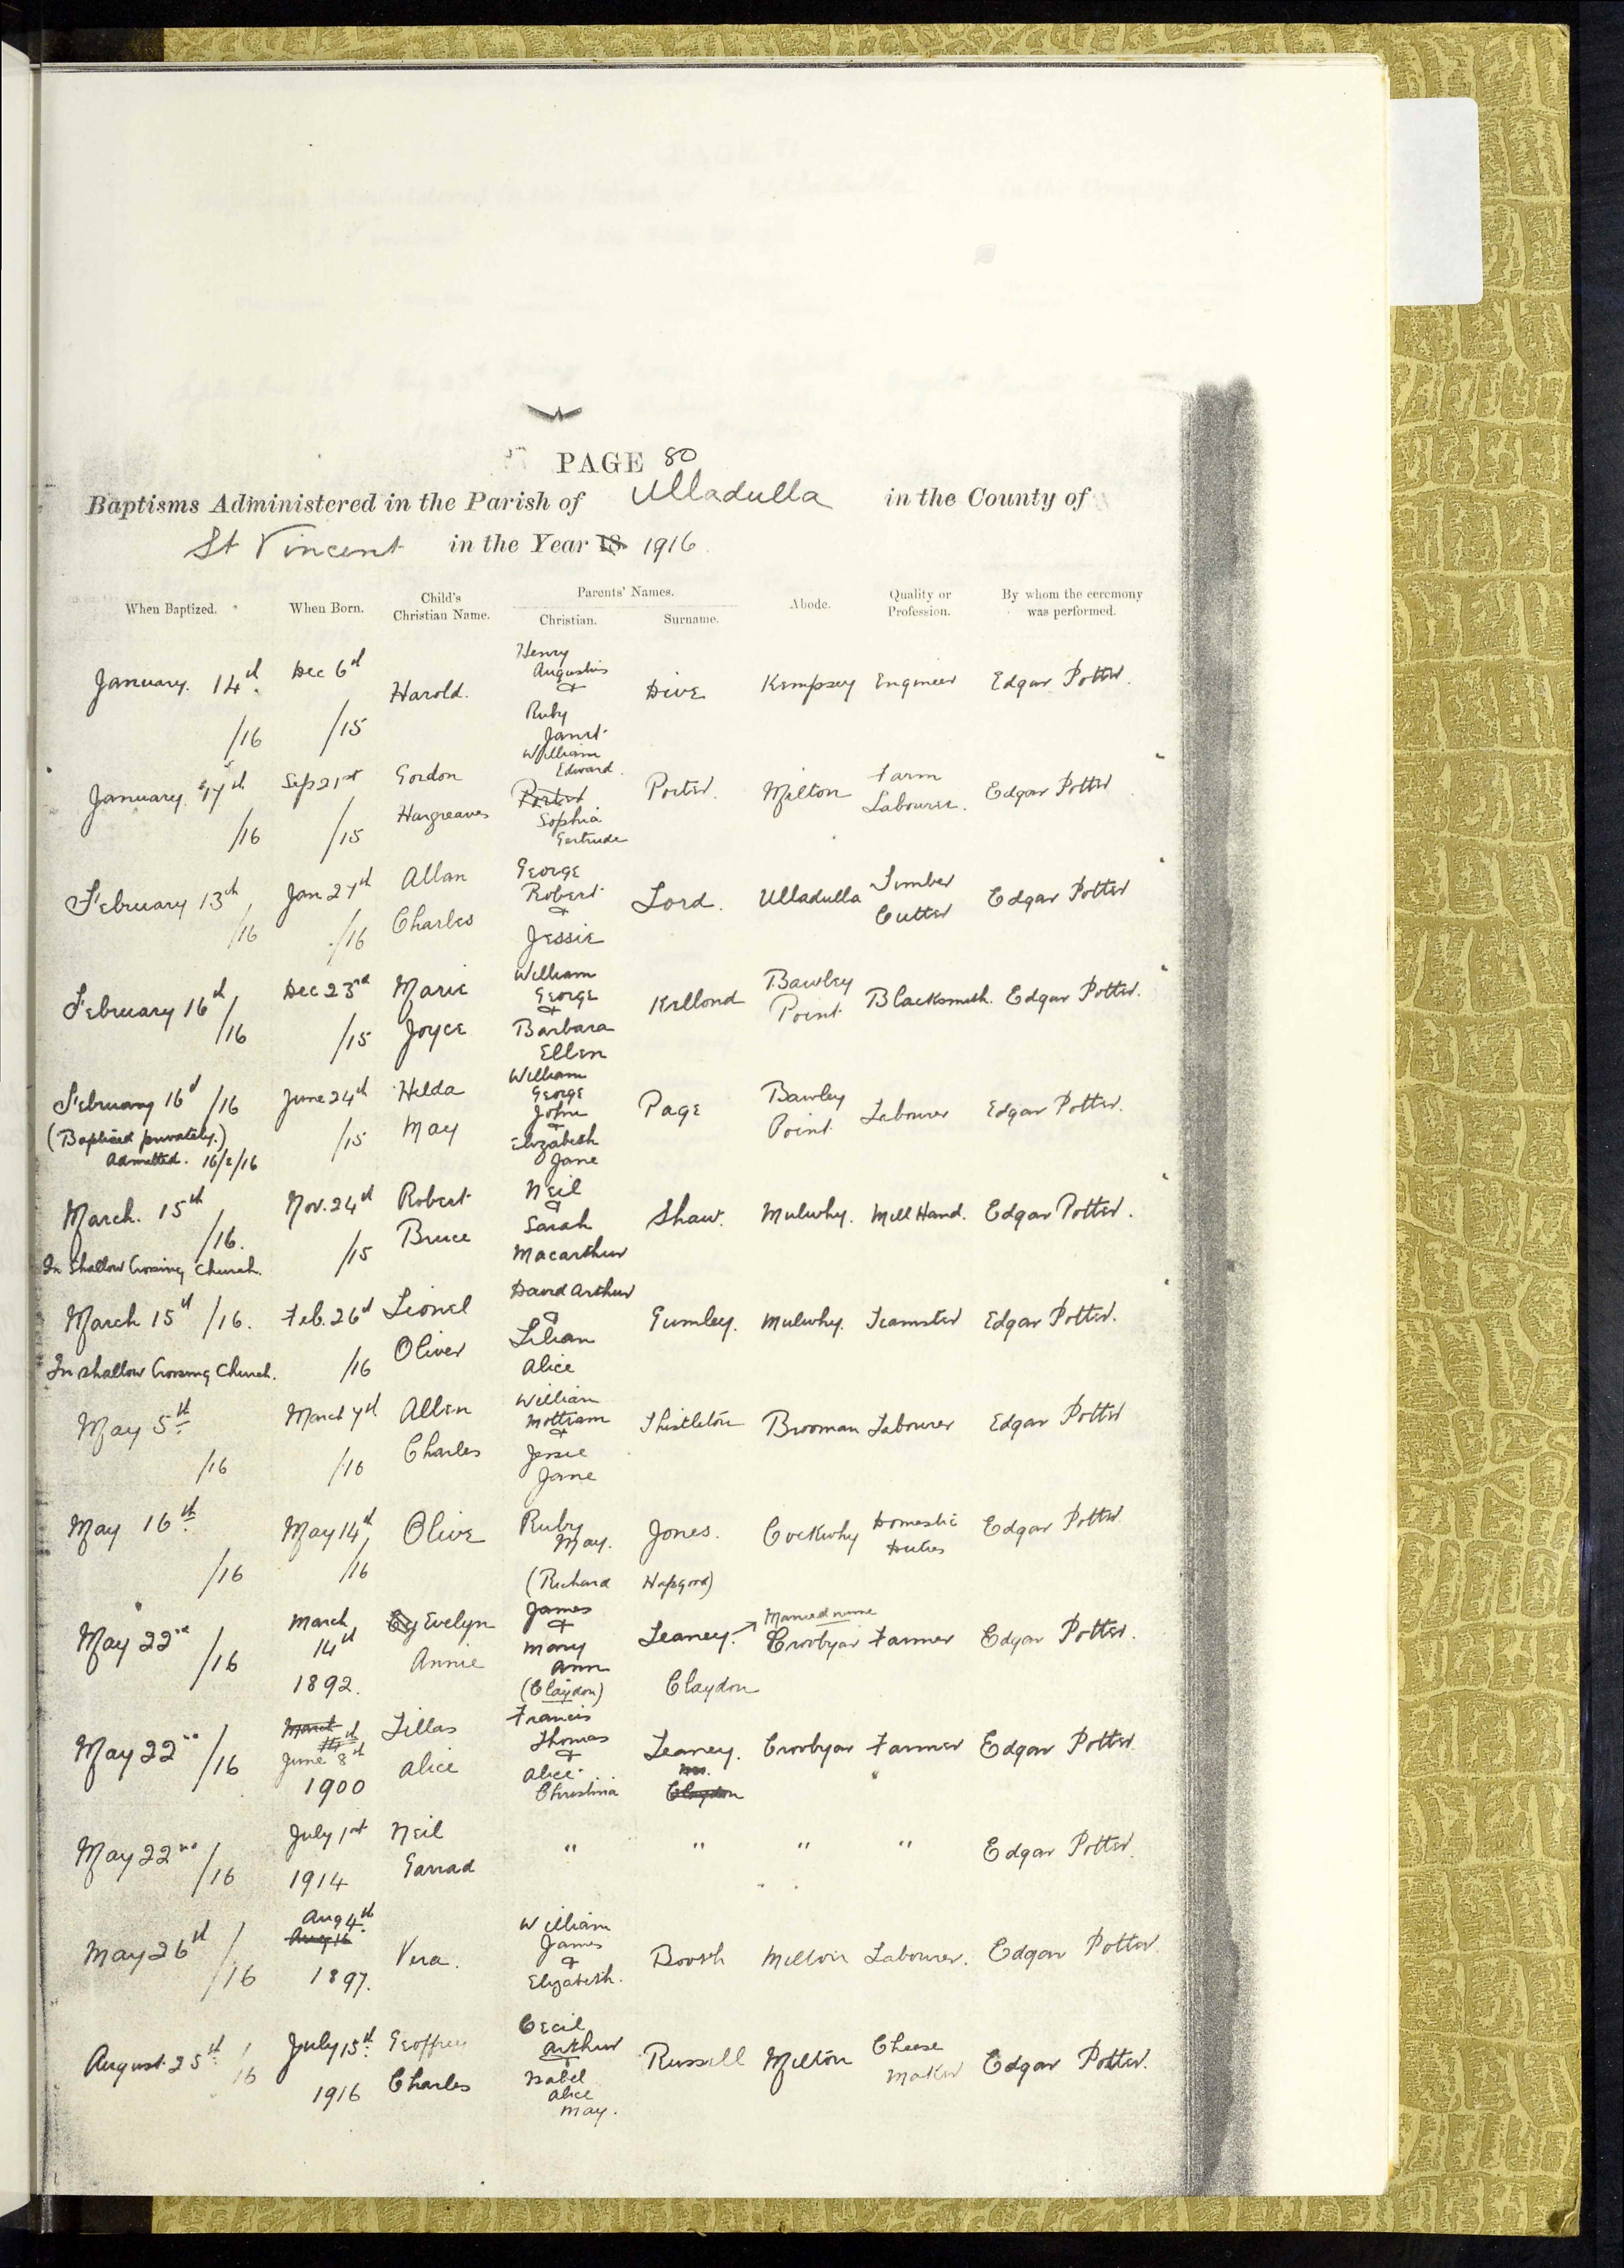 PAGE 80
Baptisms Administered in the Parish of Ulladulla in the County of
St Vincent in the Year 18 1916
When Baptized. When Born. Child's Christian Name. Parents' Names. Christian. Surname. Abode. Quality or Profession. By whom the ceremony was performed.
January 14th /16 Dec 6th /15 Harold. Henry Augustus & Ruby Janet Dive Kempsey Engineer Edgar Potter.
January 17th /16 Sep 21st /15 Gordon Hargreaves William Edward Porter Sophia Gertrude Porter. Milton Farm Labourer. Edgar Potter
February 13th /16 Jan 27th /16 Allan Charles George Robert & Jessie Lord. Ulladulla Timber Cutter Edgar Potter
February 16th /16 Dec 23rd /15 Marie Joyce William George & Barbara Ellen Kellond Bawley Point Blacksmith. Edgar Potter.
February 16th /16 (Baptised privately.) Admitted. 16/2/16 June 24th /15 Hilda May William George John & Elizabeth Jane Page Bawley Point Labourer Edgar Potter.
March. 15th /16. In Shallow Crossing Church. Nov. 24th /15 Robert Bruce Neil & Sarah Macarthur Shaw. Mulwhy. Mill Hand. Edgar Potter.
March 15th /16. In Shallow Crossing Church. Feb. 26th /16 Lionel Oliver David Arthur & Lilian Alice Gumley. Mulwhy. Teamster Edgar Potter.
May 5th /16 March 7th /16 Allen Charles William Mottram & Jessie Jane Thistleton Brooman Labourer Edgar Potter
May 16th /16 May 14th /16 Olive Ruby May. (Richard Hapgood) Jones. Cockwhy Domestic Duties Edgar Potter
May 22nd /16 March 14th 1892. Evelyn Annie James & Mary Ann (Claydon) Leaney. → Married name Claydon Croobyar Farmer Edgar Potter.
May 22nd /16 March 14th June 8th 1900 Lillas Alice Francis Thomas & Alice Christina Leaney. Claydon Croobyar Farmer Edgar Potter
May 22nd /16 July 1st 1914 Neil Garrad " " " " Edgar Potter.
May 26th /16 Aug 4th Aug 16 1897. Vera. William James & Elizabeth. Boosh Milton Labourer. Edgar Potter
August 25th /16 July 15th 1916 Geoffrey Charles Cecil Arthur & Isabel Alice May. Russell Milton Cheese Maker Edgar Potter.